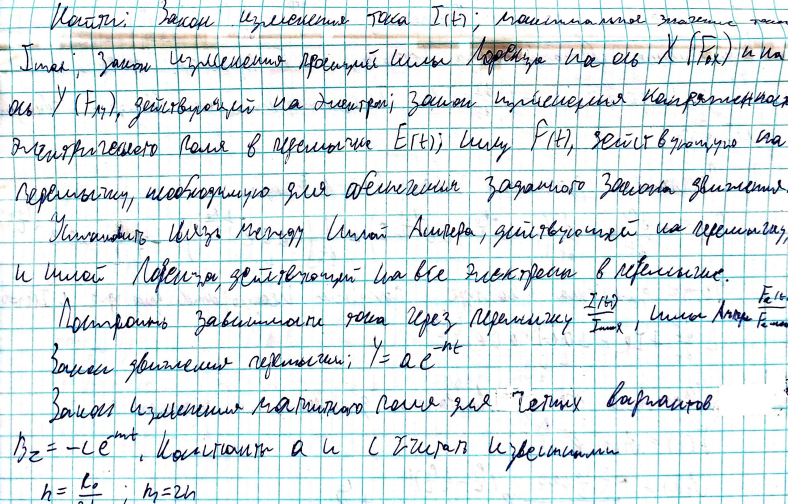 Найти: Закон изменения тока I(t); максимальное значение тока
Imax; закон изменения проекций силы Лоренца на ось X (Fлx) и на
ось Y (Fлy), действующей на электрон; закон изменения напряженности
электрического поля в перемычке E(t); силу F(t), действующую на
перемычку, необходимую для обеспечения заданного закона движения.
Установить связь между силой Ампера, действующей на перемычку,
и силой Лоренца, действующей на все электроны в перемычке.
Построить зависимости тока через перемычку I(t)/Imax, силы Ампера
Закон движения перемычки; Y = ae^-nt
Закон изменения магнитного поля для четных вариантов
Bz = -ce^-mt. Константы a и c считать известными
m=2n